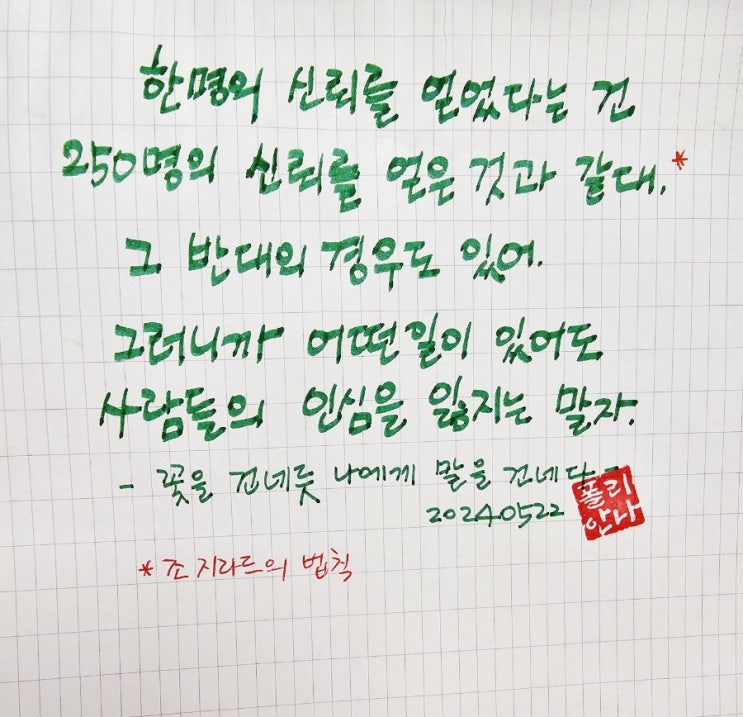 한명의 신뢰를 얻었다는 건
250명의 신뢰를 얻은 것과 같대.*
그 반대의 경우도 있어.
그러니까 어떤일이 있어도
사람들의 인심을 잃지는 말자.
- 꽃을 건네듯 나에게 말을 건네다 -
20240522
폴리
안나
* 조 지라드의 법칙